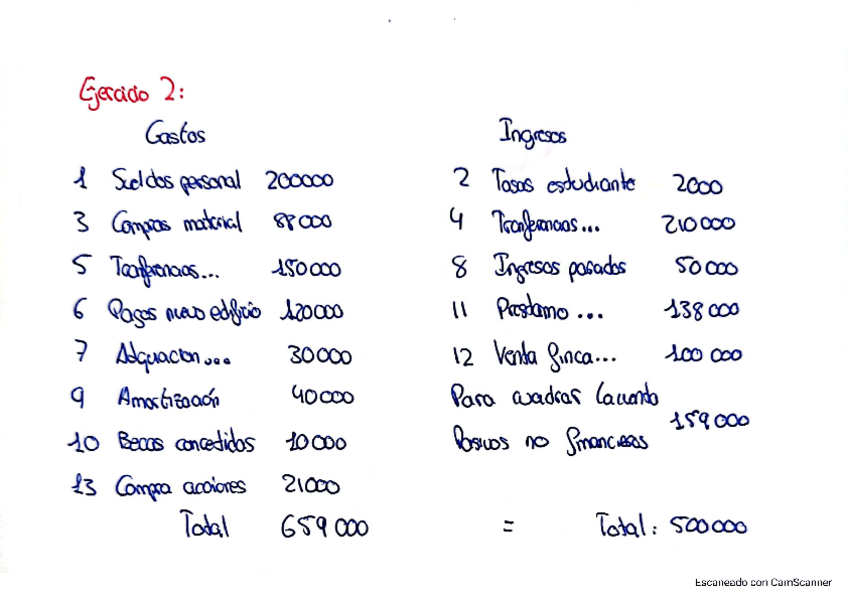 Ejercicio 2:
Gastos
1 Sueldos personal 200000
3 Compras material 88000
5 Tranferencias... 150000
6 Pagos nuevo edificio 120000
7 Adquacion... 30000
9 Amortización 40000
10 Becas concedidas 10000
13 Compra acciones 21000
Total 659000
Ingresos
2 Tasas estudiante 2000
4 Tranferencias... 210000
8 Ingresos pasados 50000
11 Prestamo ... 138000
12 Venta finca... 100 000
Para cuadrar la cuenta
159000
Pasivos no financieros
= Total: 500000
Escaneado con CamScanner